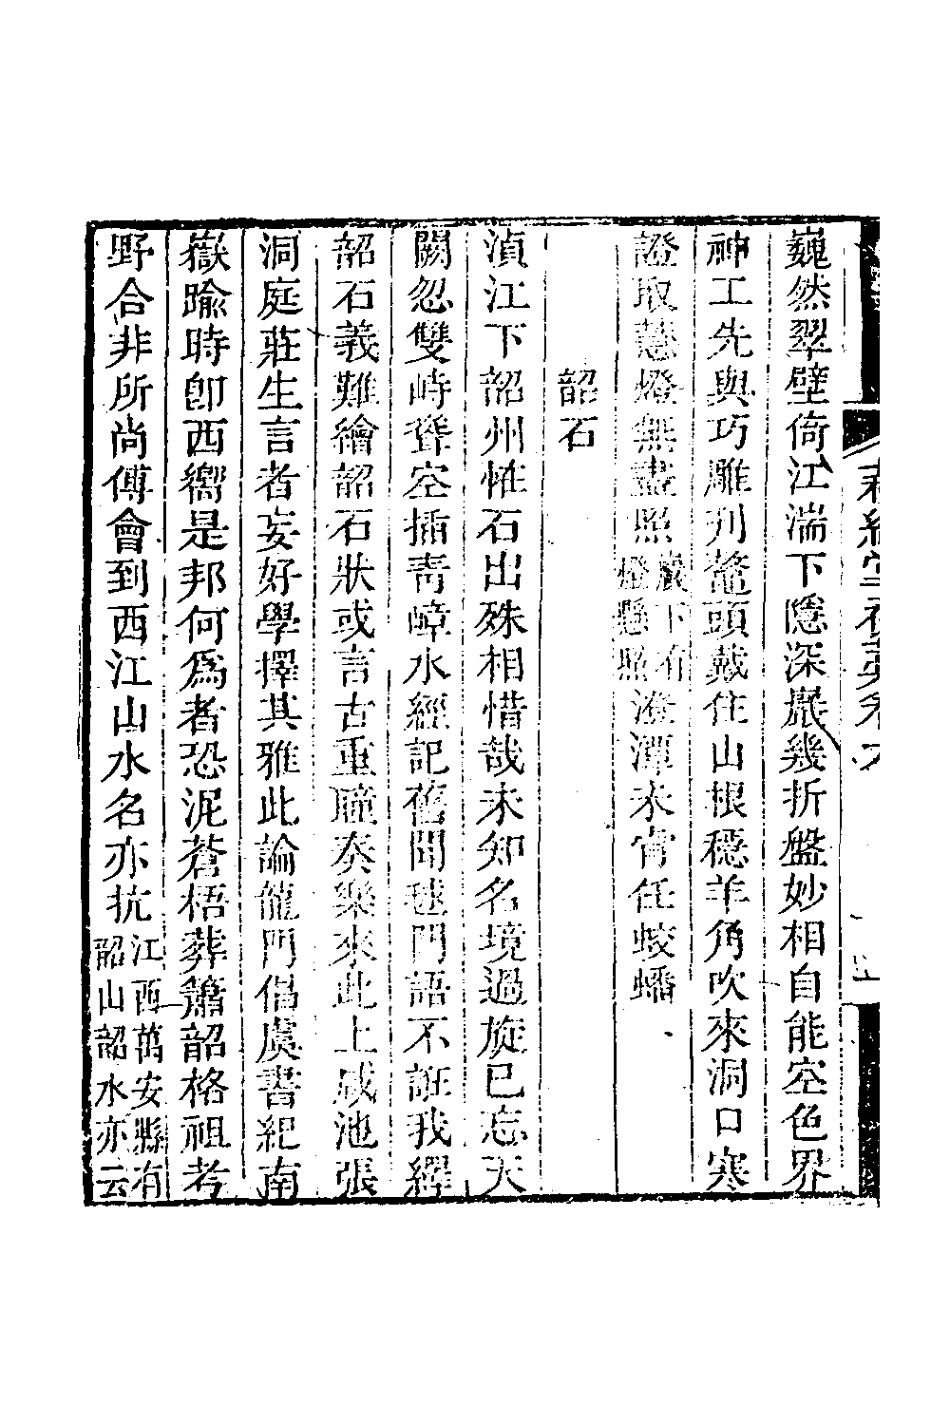 巍然翠壁倚江湍下隱深巖幾折盤妙相自能空色界
神工先與巧雕刋鼇頭戴住山根穩羊角吹來洞口寒
證取慧燈無盡照巖下有燈懸照澄潭未肯任蛟蟠
韶石
滇江下韶州惟石出殊相惜哉未知名境過旋已忘天
闕忽雙峙聳空插靑嶂水經記舊聞毬門語不誑我繹
韶石義難繪韶石狀或言古重瞳奏樂來此上咸池張
洞庭莊生言者妄好學擇其雅此論龍門倡虞書紀南
嶽踰時卽西嚮是邦何爲者恐泥蒼梧葬簫韶格祖考
野合非所尚傅會到西江山水名亦抗江西萬安縣有韶山韶水亦云